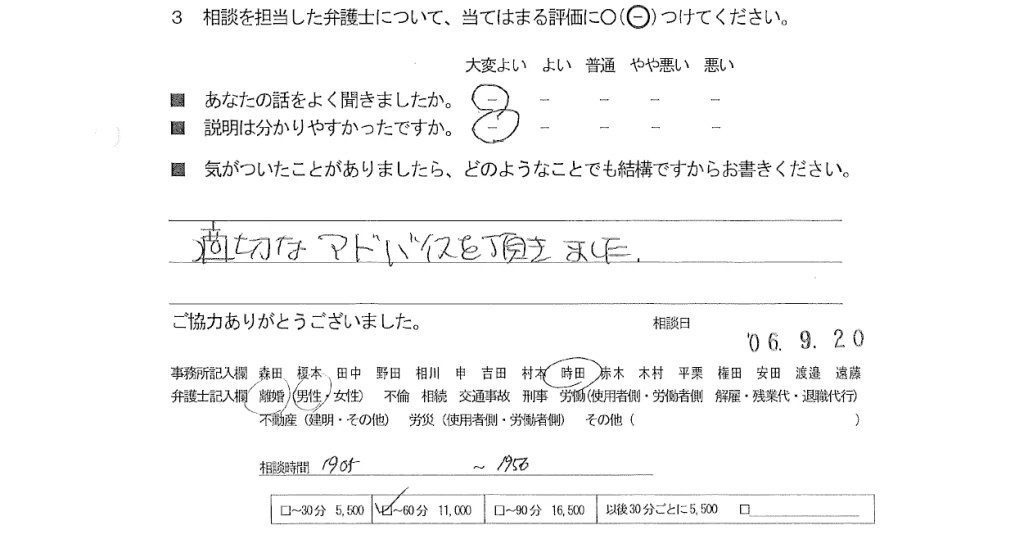 3 相談を担当した弁護士について、当てはまる評価に○(㊀)つけてください。
大変よい よい 普通 やや悪い 悪い
■ あなたの話をよく聞きましたか。 － － － － －
■ 説明は分かりやすかったですか。 － － － － －
■ 気がついたことがありましたら、どのようなことでも結構ですからお書きください。
適切なアドバイスを頂きました.
ご協力ありがとうございました。 相談日
'06. 9. 20
事務所記入欄 森田 榎本 田中 野田 相川 申 吉田 村本 時田 弥木 木村 平栗 権田 安田 渡邉 遠藤
弁護士記入欄 離婚 (男性・女性) 不倫 相続 交通事故 刑事 労働(使用者側・労働者側 解雇・残業代・退職代行)
不動産 (建明・その他) 労災 (使用者側・労働者側) その他 ( )
相談時間 1905 ～ 1956
□～30分 5,500 □～60分 11,000 □～90分 16,500 以後30分ごとに5,500 □